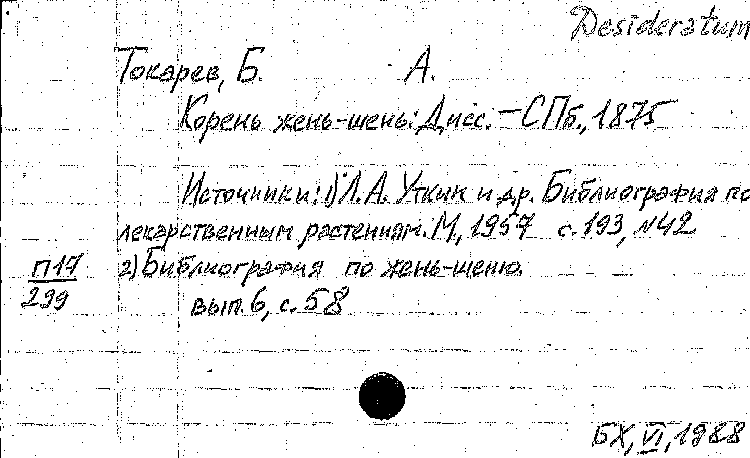 Desideratum
Токарев, Б. А.
Корень жень-шень: Дисс. — СПб., 1875
Источники: 1) Л.А. Уткин и др. Библиография по
лекарственным растениям. М., 1957 с. 193, №42
П17
239
2) Библиография по жень-шеню.
вып. 6, с. 58
БХ, VI, 1988